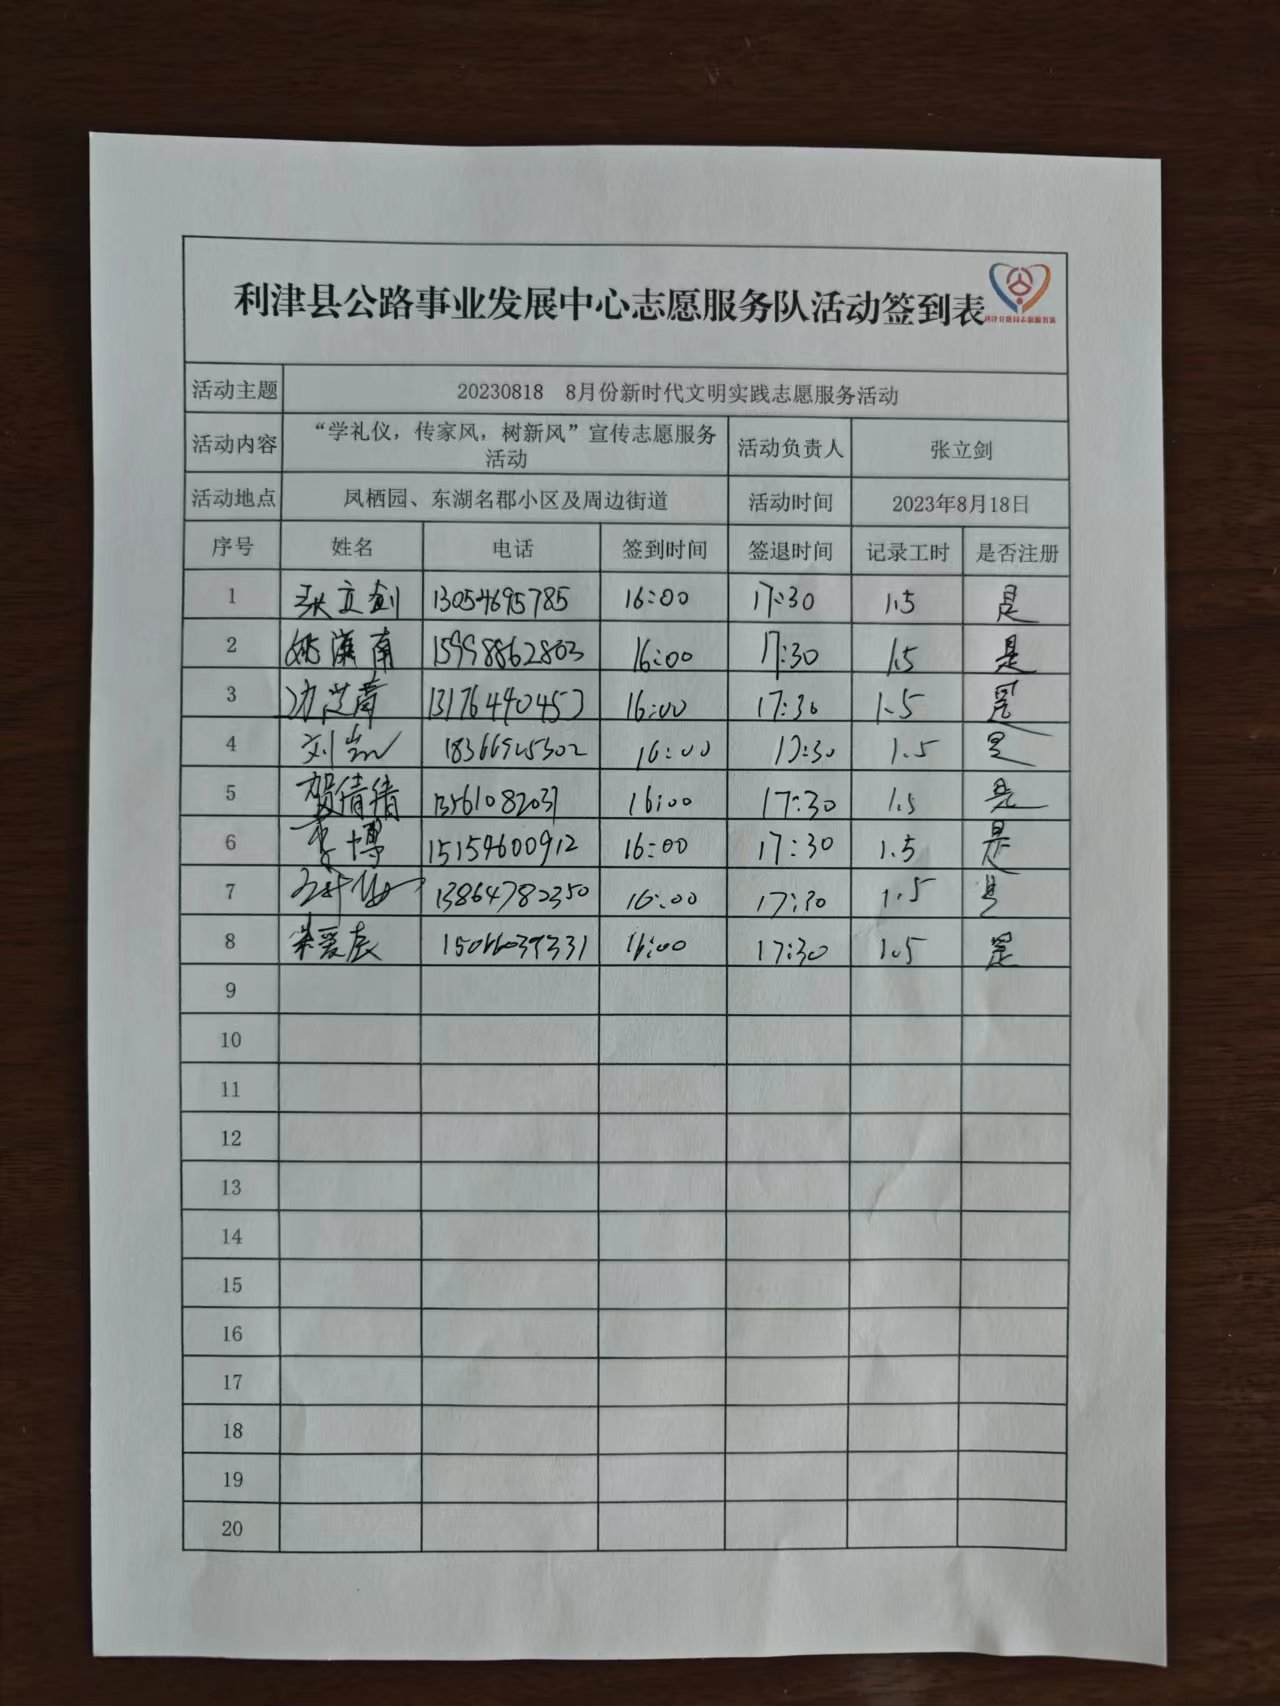 利津县公路事业发展中心志愿服务队活动签到表
利津公路同志愿服务队
活动主题 20230818 8月份新时代文明实践志愿服务活动
活动内容 “学礼仪，传家风，树新风”宣传志愿服务活动 活动负责人 张立剑
活动地点 凤栖园、东湖名郡小区及周边街道 活动时间 2023年8月18日
序号 姓名 电话 签到时间 签退时间 记录工时 是否注册
1 张立剑 13054695785 16:00 17:30 1.5 是
2 姚滨南 15998862803 16:00 17:30 1.5 是
3 13176490453 16:00 17:30 1.5 是
4 刘凯 18366925302 16:00 17:30 1.5 是
5 贺倩倩 13561082031 16:00 17:30 1.5 是
6 李博 15154600912 16:00 17:30 1.5 是
7 13864782350 16:00 17:30 1.5 是
8 16:00 17:30 1.5 是
9
10
11
12
13
14
15
16
17
18
19
20